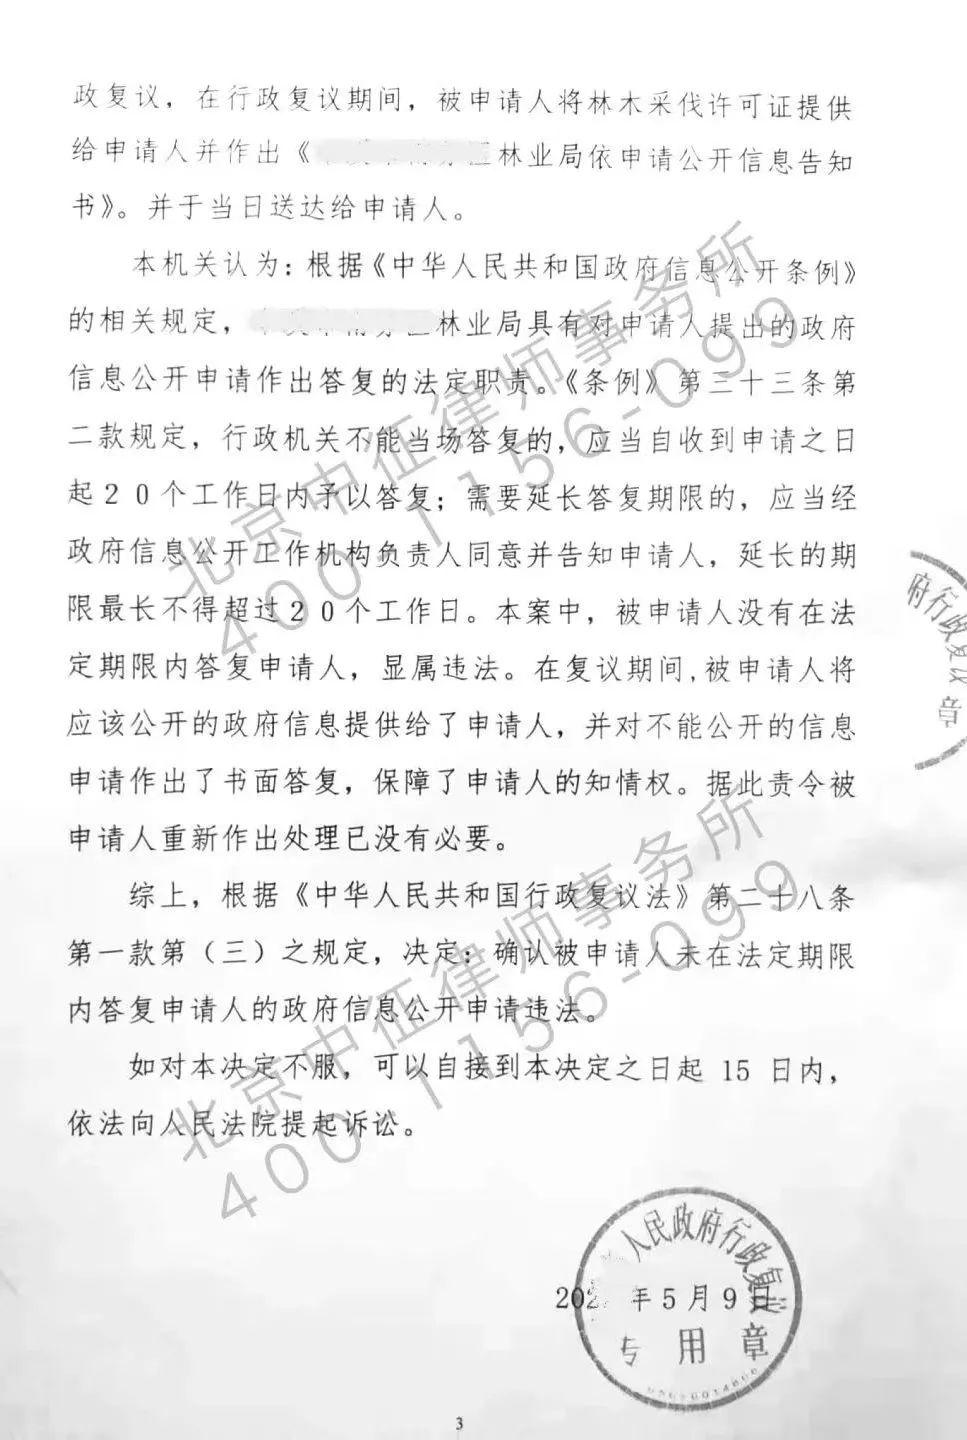 政复议，在行政复议期间，被申请人将林木采伐许可证提供
给申请人并作出《 林业局依申请公开信息告知
书》。并于当日送达给申请人。
本机关认为：根据《中华人民共和国政府信息公开条例》
的相关规定， 林业局具有对申请人提出的政府
信息公开申请作出答复的法定职责。《条例》第三十三条第
二款规定，行政机关不能当场答复的，应当自收到申请之日
起20个工作日内予以答复；需要延长答复期限的，应当经
政府信息公开工作机构负责人同意并告知申请人，延长的期
限最长不得超过20个工作日。本案中，被申请人没有在法
定期限内答复申请人，显属违法。在复议期间,被申请人将
应该公开的政府信息提供给了申请人，并对不能公开的信息
申请作出了书面答复，保障了申请人的知情权。据此责令被
申请人重新作出处理已没有必要。
综上，根据《中华人民共和国行政复议法》第二十八条
第一款第（三）之规定，决定：确认被申请人未在法定期限
内答复申请人的政府信息公开申请违法。
如对本决定不服，可以自接到本决定之日起 15 日内，
依法向人民法院提起诉讼。
202 年5月9日
人民政府行政复议
专用章
府行政复议
章
北京中征律师事务所
400-1156-099
北京中征律师事务所
400-1156-099
3